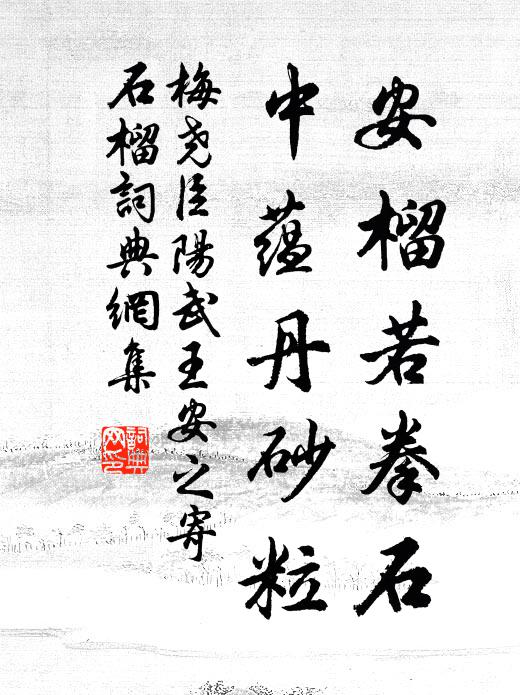 安榴若拳石
中蕴丹砂粒
梅尧臣陽武王安之寄
石榴詞典網集
詞典网印